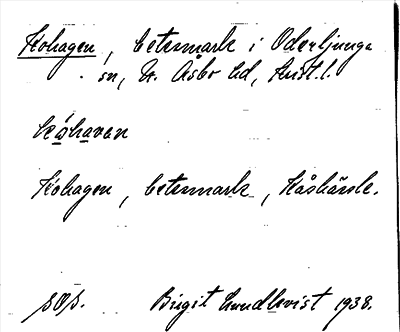 Kohagen, betesmark i Oderljunga
sn, N. Åsbo hd, Krist. l.
kóhavan
Kohagen, betesmark, Håshässle.
Birgit Lundkvist 1938.